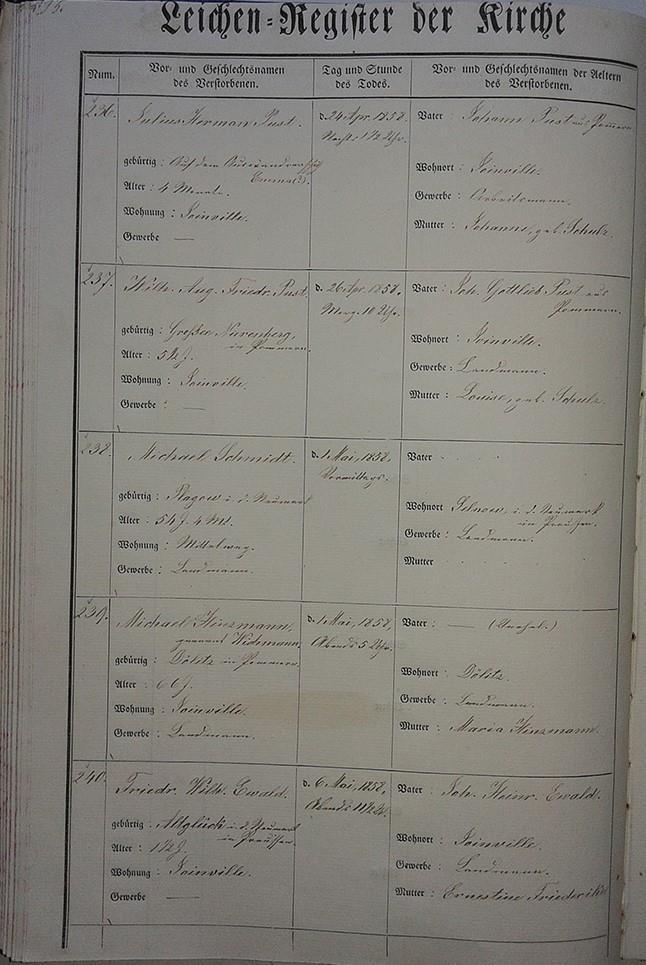 Leichen-Register der Kirche
Num.
Vor- und Geschlechtsnamen
des Verstorbenen.
Tag und Stunde
des Todes.
Vor- und Geschlechtsnamen der Aeltern
des Verstorbenen.
236.
Julius Herman Pust.
gebürtig : Auf dem
Alter : 4 Monate.
Wohnung : Joinville.
Gewerbe —
d. 24 Apr. 1858.
Nachts 1 1/2 Uhr.
Vater : Johann Pust aus Pommern
Wohnort : Joinville.
Gewerbe : Arbeitsmann.
Mutter : Johanne, geb. Schulz.
237.
Wilh. Aug. Friedr. Pust.
gebürtig :
in Pommern.
Alter :
Wohnung : Joinville.
Gewerbe : —
d. 26 Apr. 1858.
Morg. 10 Uhr.
Vater : Joh. Gottlieb Pust aus
Pommern.
Wohnort : Joinville.
Gewerbe : Landmann.
Mutter : Louise, geb. Schulz.
238.
Michael Schmidt.
gebürtig : Plagow i. d. Neumark
Alter : 54 J. 4 Mt.
Wohnung : Mittelweg.
Gewerbe : Landmann.
d. 1 Mai, 1858.
Vormittags.
Vater
Wohnort i. d. Neumark
in Preussen.
Gewerbe : Landmann.
Mutter
239.
Michael Hinzmann,
genannt Widemann.
gebürtig : Dölitz in Pommern.
Alter : 66 J.
Wohnung : Joinville.
Gewerbe : Landmann.
d. 1 Mai, 1858.
Abends 5 Uhr.
Vater : — (Unehel.)
Wohnort : Dölitz.
Gewerbe : Landmann.
Mutter : Maria Hinzmann.
240.
Friedr. Wilh. Ewald.
gebürtig : Altglück i. d. Neumark
in Preussen.
Alter : 1 1/2 J.
Wohnung : Joinville.
Gewerbe —
d. 6 Mai, 1858.
Abends
Vater : Joh. Heinr. Ewald.
Wohnort : Joinville.
Gewerbe : Landmann.
Mutter : Ernestine Friederike